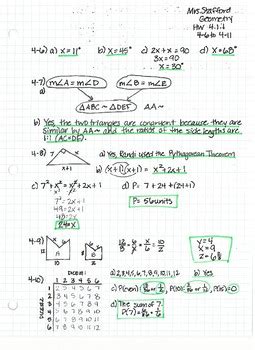 Mrs. Stafford
Geometry
HW 4.1.1
4-6 to 4-11
4-6) a) x = 11° b) x = 45° c) 2x + x = 90 d) x = 68°
3x = 90
x = 30°
4-7)
a) m∠A = m∠D m∠B = m∠E
△ABC ~ △DEF AA~
b) Yes, the two triangles are congruent because they are
similar by AA~ and the ratios of the side lengths are
1:1 (AC=DF).
4-8) 7 x x+1 a) Yes, Randi used the Pythagorean Theorem
b) (x+1)(x+1) = x² + 2x + 1
c) 7² + x² = x² + 2x + 1 d) P = 7 + 24 + (24+1)
7² = 2x + 1 P = 56 units
49 = 2x + 1
48 = 2x
24 = x
4-9) A B
x = 9
4-10) DICE #1 a) 2,3,4,5,6,7,8,9,10,11,12 b) Yes
1 2 3 4 5 6
1 2 3 4 5 6 7
2 3 4 5 6 7 8
3 4 5 6 7 8 9
4 5 6 7 8 9 10
5 6 7 8 9 10 11
6 7 8 9 10 11 12
DICE #2
c) P(even) 18/36 or 1/2, P(10) 3/36 or 1/12, P(15) = 0
d) The sum of 7.
P(7) = 6/36 = 1/6